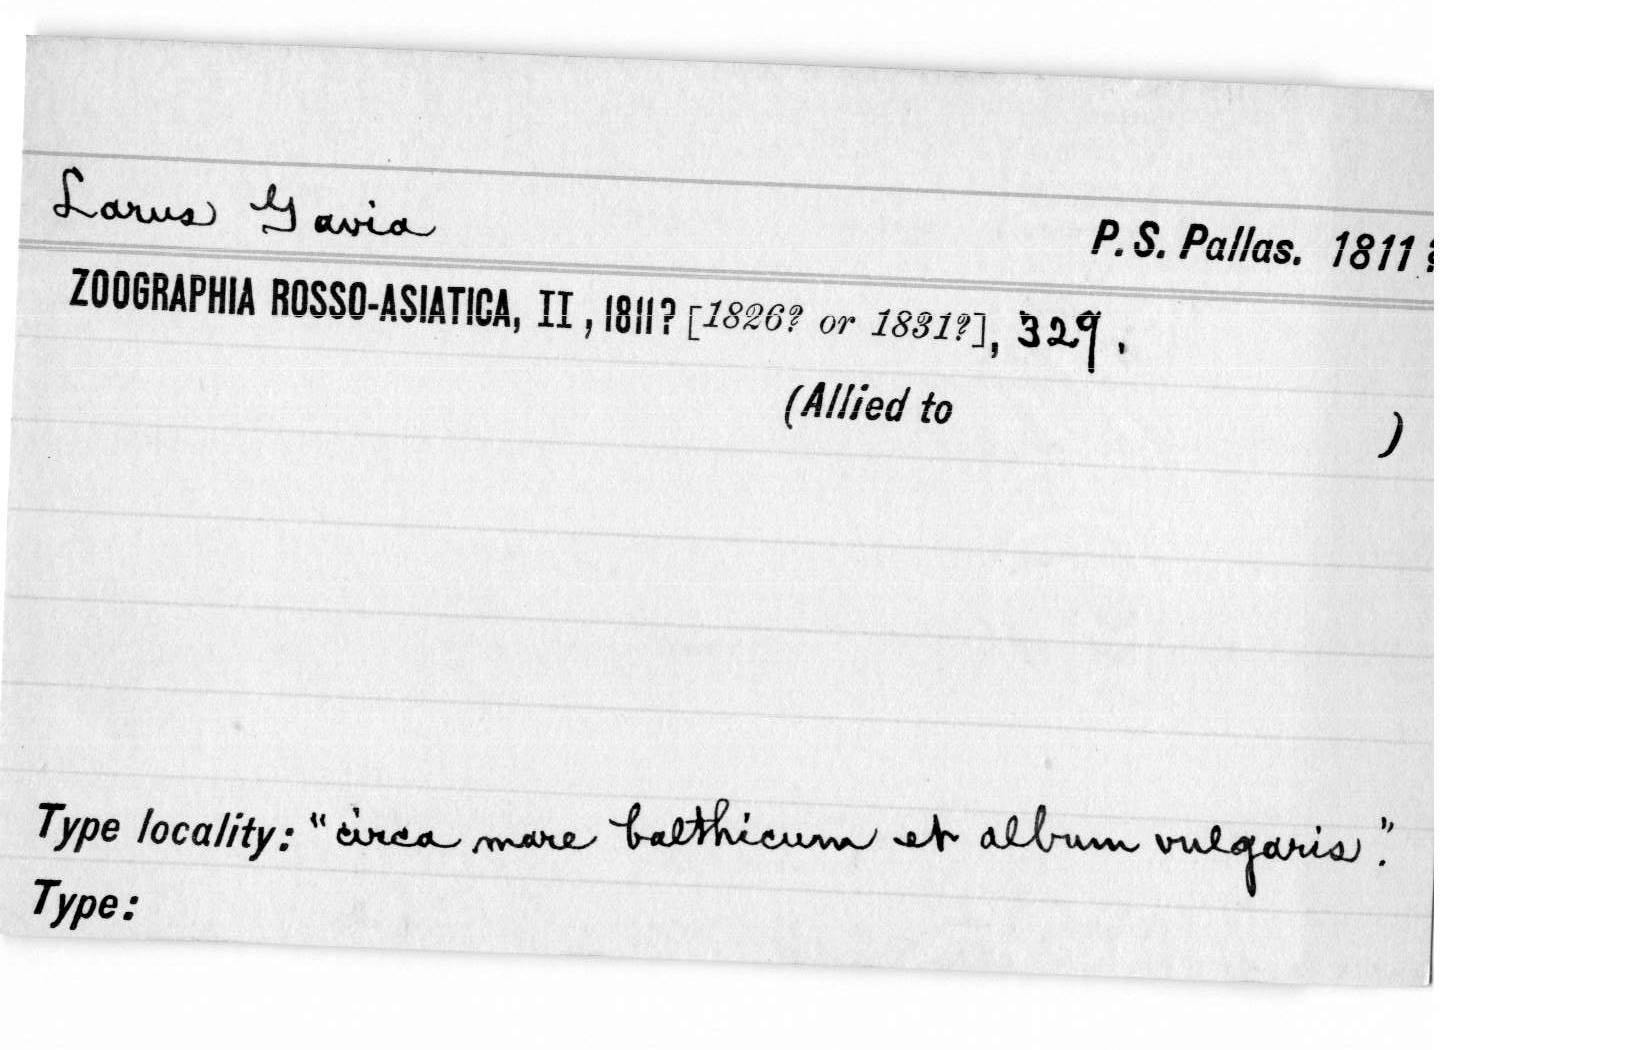 Larus Gavia
P. S. Pallas. 1811?
ZOOGRAPHIA ROSSO-ASIATICA, II, 1811? [1826? or 1831?], 329.
(Allied to )
Type locality: "circa mare balthicum et album vulgaris".
Type: